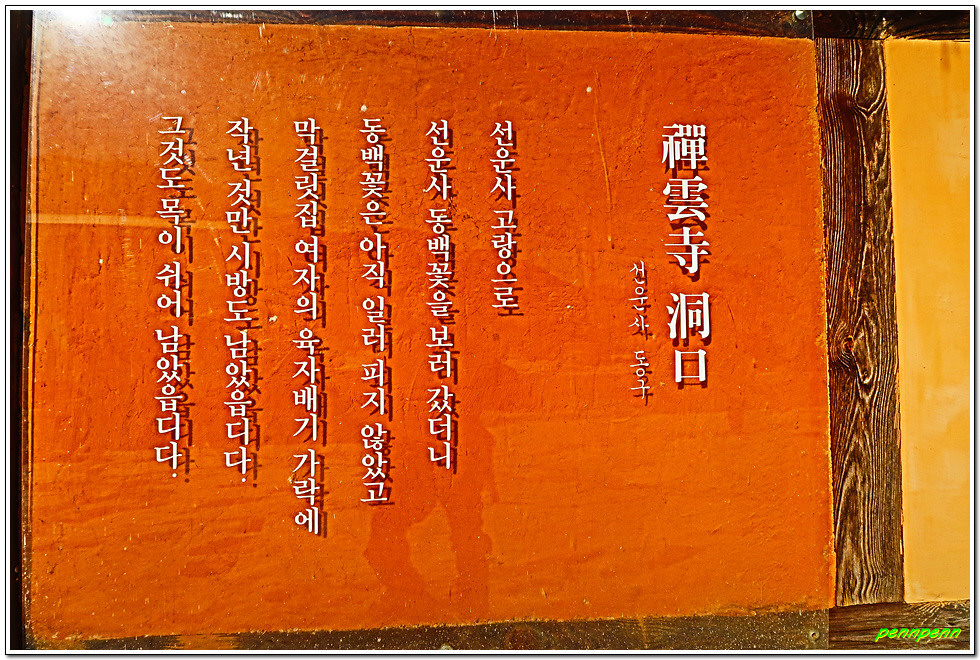 禪雲寺 洞口
선운사 동구
선운사 고랑으로
선운사 동백꽃을 보러 갔더니
동백꽃은 아직 일러 피지 않았고
막걸릿집 여자의 육자배기 가락에
작년 것만 시방도 남았읍디다.
그것도 목이 쉬어 남았읍디다.
pennpenn